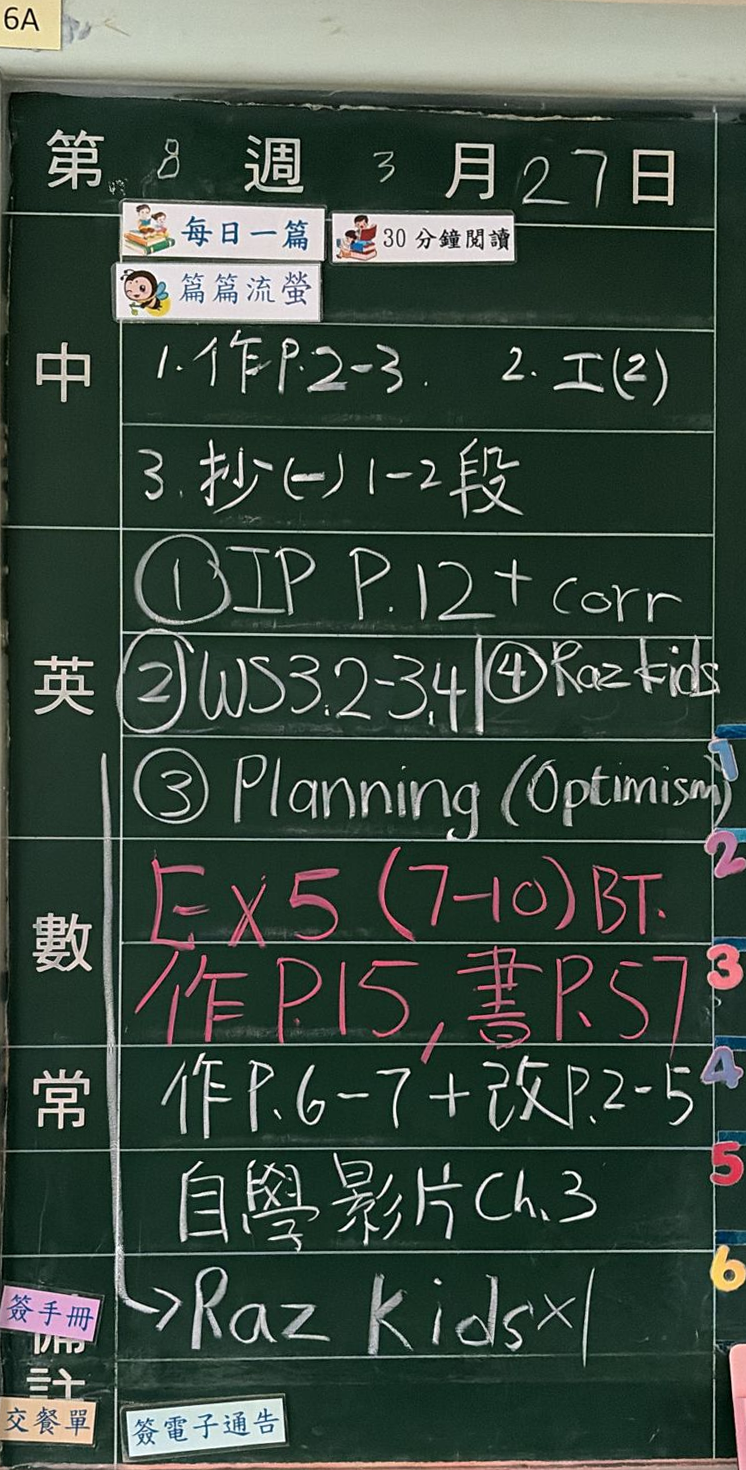 6A
第 8 週 3 月 27 日
每日一篇 30分鐘閱讀
篇篇流螢
中 1. 作P.2-3. 2. 工(2)
3. 抄(一) 1-2段
① IP P.12 + corr
英 ② WS3.2-3.4 | ④ Raz kids
③ Planning (Optimism)
1
2
數 Ex5 (7-10) BT.
作P.15, 書P.57
3
常 作P.6-7 + 改P.2-5
4
自學影片 Ch.3
5
→ Raz Kids×1
6
簽手冊
備註
交餐單 簽電子通告